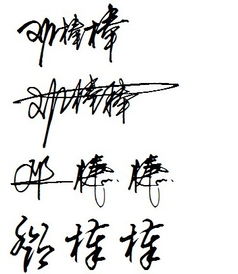 邓棒棒
邓棒棒
邓棒棒
邓棒棒